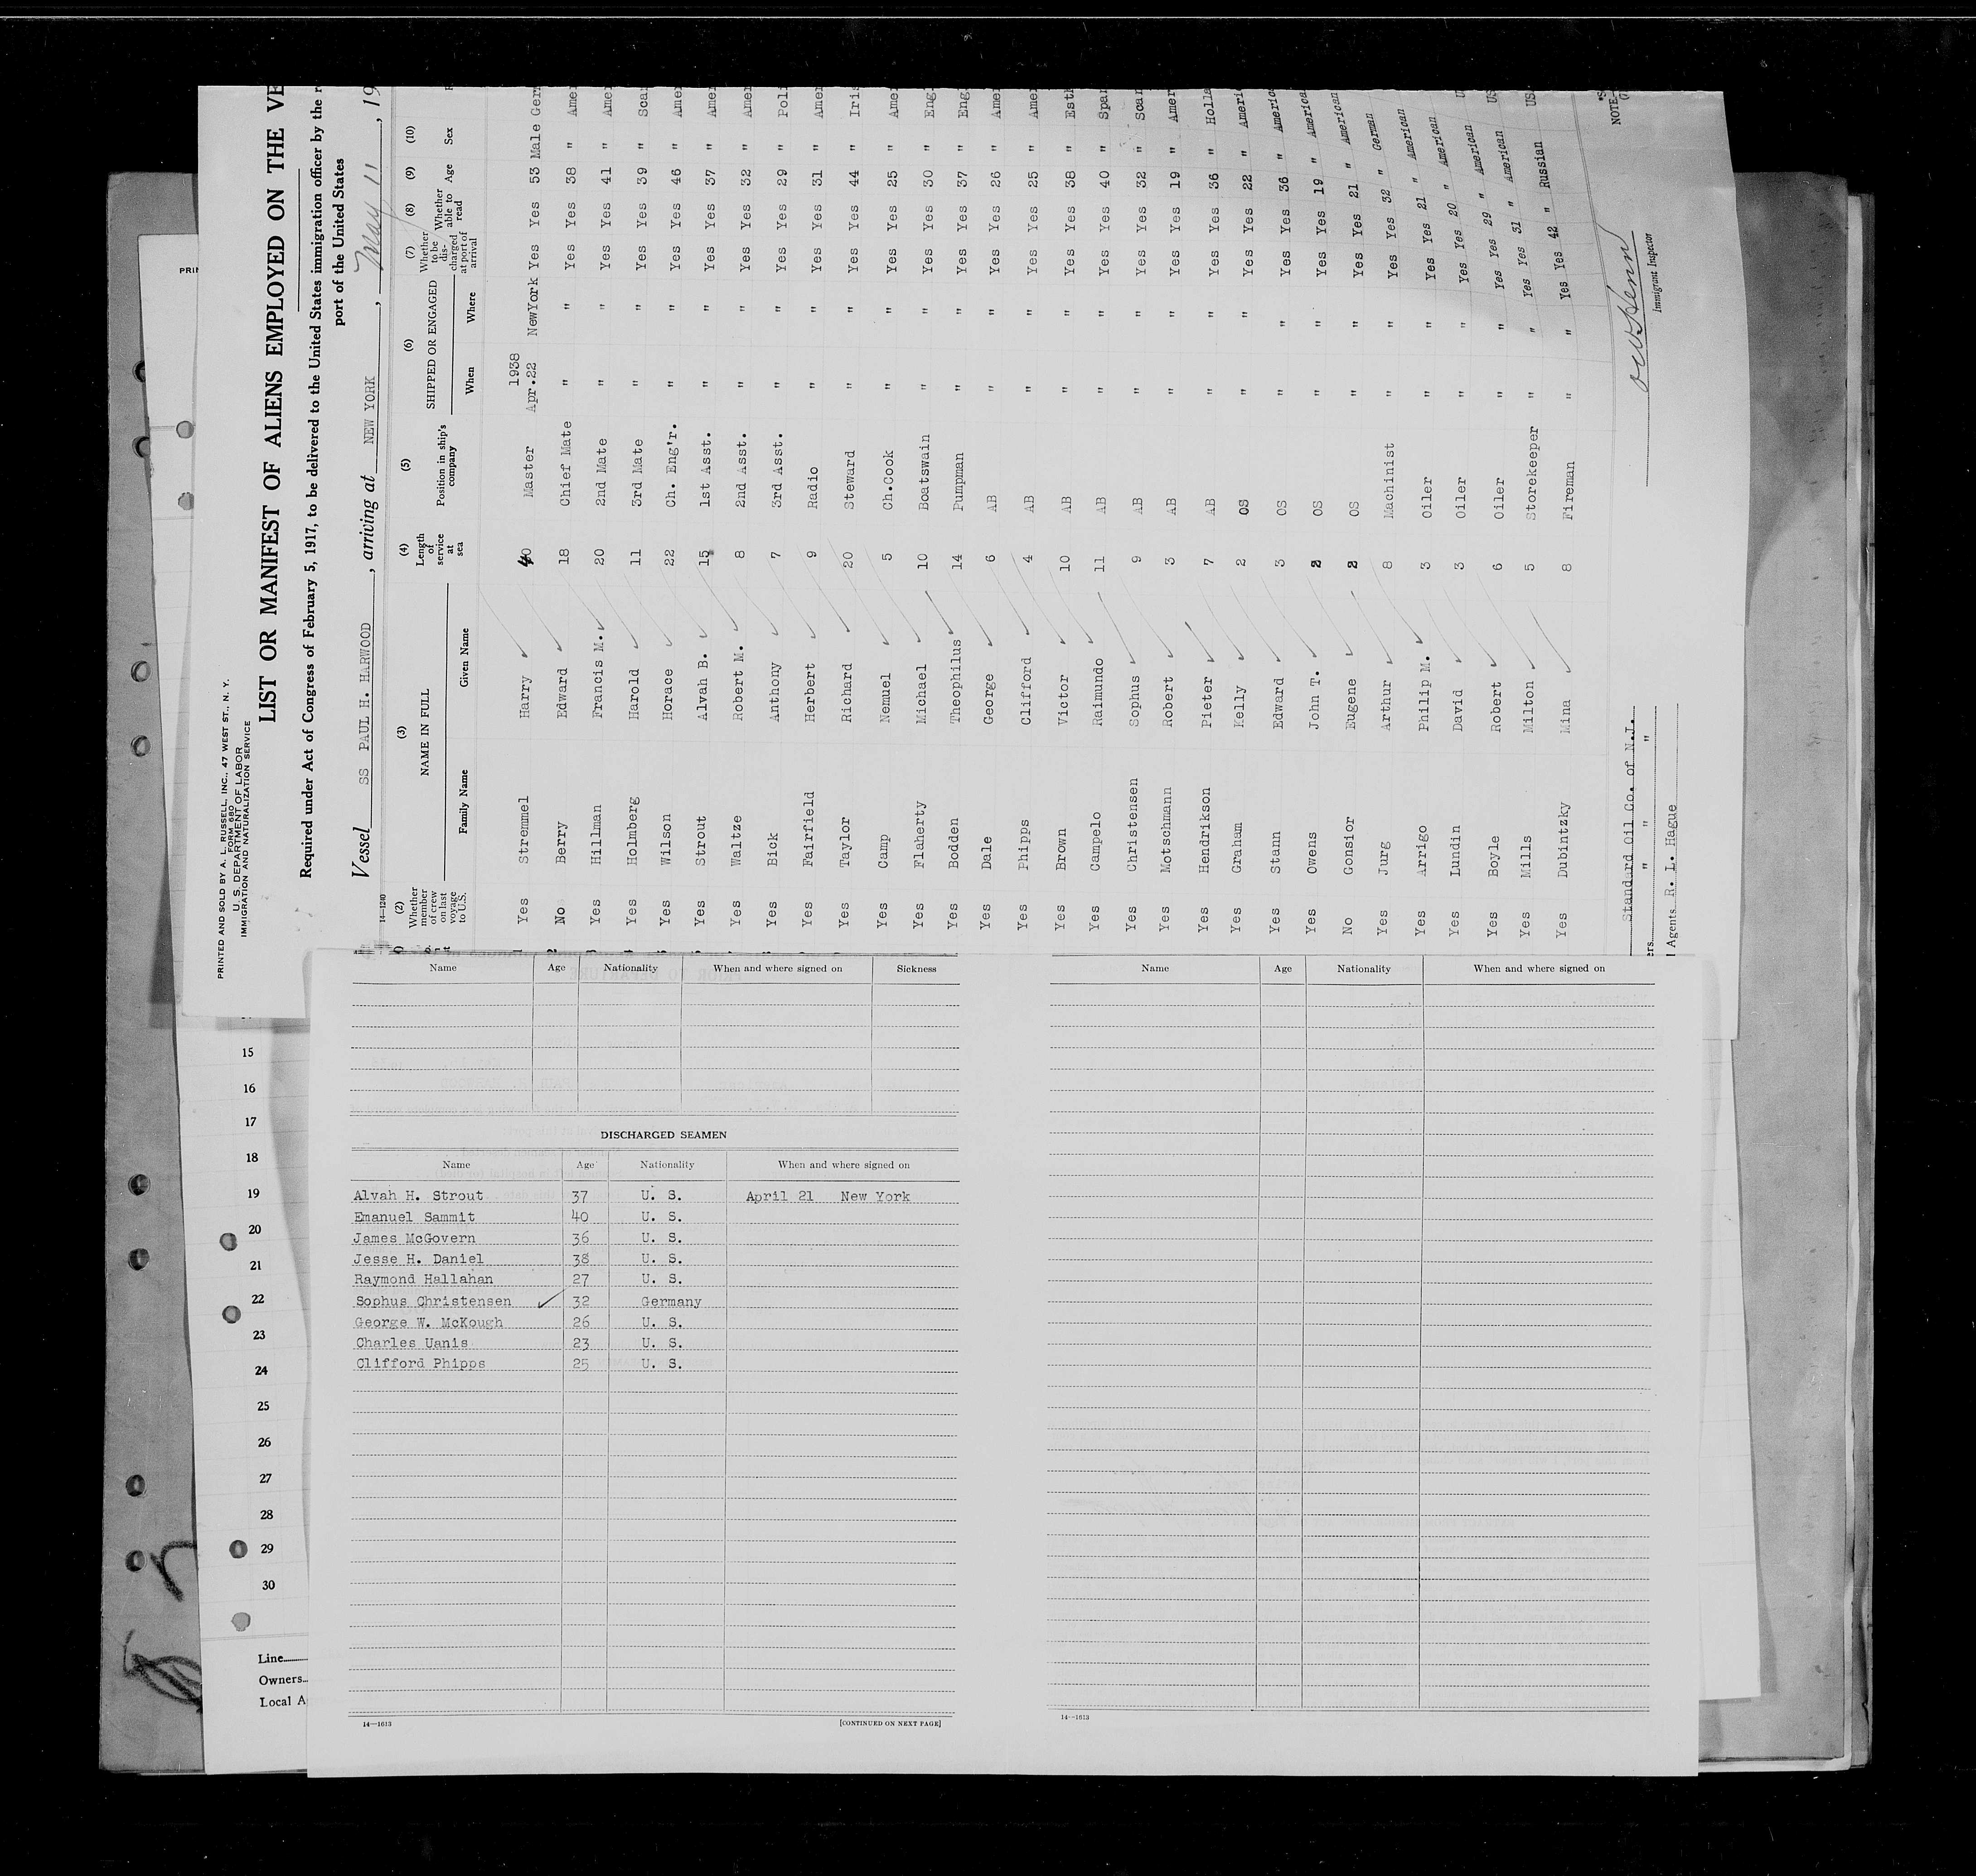 PRINTED AND SOLD BY A. L. RUSSELL, INC., 47 WEST ST., N. Y.
FORM 680
U. S. DEPARTMENT OF LABOR
IMMIGRATION AND NATURALIZATION SERVICE
LIST OR MANIFEST OF ALIENS EMPLOYED ON THE VE
Required under Act of Congress of February 5, 1917, to be delivered to the United States immigration officer by the r
port of the United States
Vessel SS PAUL H. HARWOOD, arriving at NEW YORK, May 11, 19
14—1240
(2) (3) (4) (5) (6) (7) (8) (9) (10)
Whether member of crew on last voyage to U.S. NAME IN FULL Family Name Given Name Length of service at sea Position in ship's company SHIPPED OR ENGAGED When Where Whether to be discharged at port of arrival Whether able to read Age Sex
1938
Yes Stremmel Harry 40 Master Apr.22 NewYork Yes Yes 53 Male Ger
No Berry Edward 18 Chief Mate " " Yes Yes 38 " Amer
Yes Hillman Francis M. 20 2nd Mate " " Yes Yes 41 " Amer
Yes Holmberg Harold 11 3rd Mate " " Yes Yes 39 " Scan
Yes Wilson Horace 22 Ch. Eng'r. " " Yes Yes 46 " Amer
Yes Strout Alvah B. 15 1st Asst. " " Yes Yes 37 " Amer
Yes Waltze Robert M. 8 2nd Asst. " " Yes Yes 32 " Amer
Yes Bick Anthony 7 3rd Asst. " " Yes Yes 29 " Poli
Yes Fairfield Herbert 9 Radio " " Yes Yes 31 " Amer
Yes Taylor Richard 20 Steward " " Yes Yes 44 " Iris
Yes Camp Nemuel 5 Ch.Cook " " Yes Yes 25 " Ame
Yes Flaherty Michael 10 Boatswain " " Yes Yes 30 " Eng
Yes Bodden Theophilus 14 Pumpman " " Yes Yes 37 " Eng
Yes Dale George 6 AB " " Yes Yes 26 " Ame
Yes Phipps Clifford 4 AB " " Yes Yes 25 " Amer
Yes Brown Victor 10 AB " " Yes Yes 38 " Esth
Yes Campelo Raimundo 11 AB " " Yes Yes 40 " Span
Yes Christensen Sophus 9 AB " " Yes Yes 32 " Scan
Yes Motschmann Robert 3 AB " " Yes Yes 19 " Amer
Yes Hendrikson Pieter 7 AB " " Yes Yes 36 " Holla
Yes Graham Kelly 2 OS " " Yes Yes 22 " Americ
Yes Stann Edward 3 OS " " Yes Yes 36 " America
Yes Owens John T. 2 OS " " Yes Yes 19 " American
No Gonsior Eugene 2 OS " " Yes Yes 21 " American
Yes Jurg Arthur 8 Machinist " " Yes Yes 32 " German
Yes Arrigo Philip M. 3 Oiler " " Yes Yes 21 " American
Yes Lundin David 3 Oiler " " Yes Yes 20 " American U
Yes Boyle Robert 6 Oiler " " Yes Yes 29 " American US
Yes Mills Milton 5 Storekeeper " " Yes Yes 31 " American US
Yes Dubintzky Mina 8 Fireman " " Yes Yes 42 " Russian
NOTE
Standard Oil Co. of N.J.
ers " " "
l Agents R. L. Hague
Immigrant Inspector
PRIN
Name Age Nationality When and where signed on Sickness
DISCHARGED SEAMEN
Name Age Nationality When and where signed on
Alvah H. Strout 37 U. S. April 21 New York
Emanuel Sammit 40 U. S.
James McGovern 36 U. S.
Jesse H. Daniel 38 U. S.
Raymond Hallahan 27 U. S.
Sophus Christensen 32 Germany
George W. McKough 26 U. S.
Charles Uanis 23 U. S.
Clifford Phipps 25 U. S.
14—1613
[CONTINUED ON NEXT PAGE]
Name Age Nationality When and where signed on
14—1613
15
16
17
18
19
20
21
22
23
24
25
26
27
28
29
30
Line
Owners
Local A